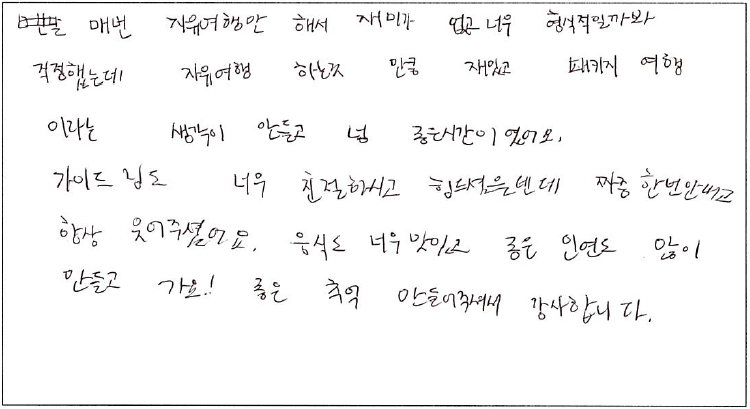 매번 자유여행만 해서 재미가 없고 너무 형식적일까봐
걱정했는데 자유여행 하는것 만큼 재밌고 패키지 여행
이라는 생각이 안들고 넘 좋은시간이였어요.
가이드님도 너무 친절하시고 힘드셨을텐데 짜증 한번안내고
항상 웃어주셨어요. 음식도 너무 맛있고 좋은 인연도 많이
만들고 가요! 좋은 추억 만들어주셔서 감사합니다.